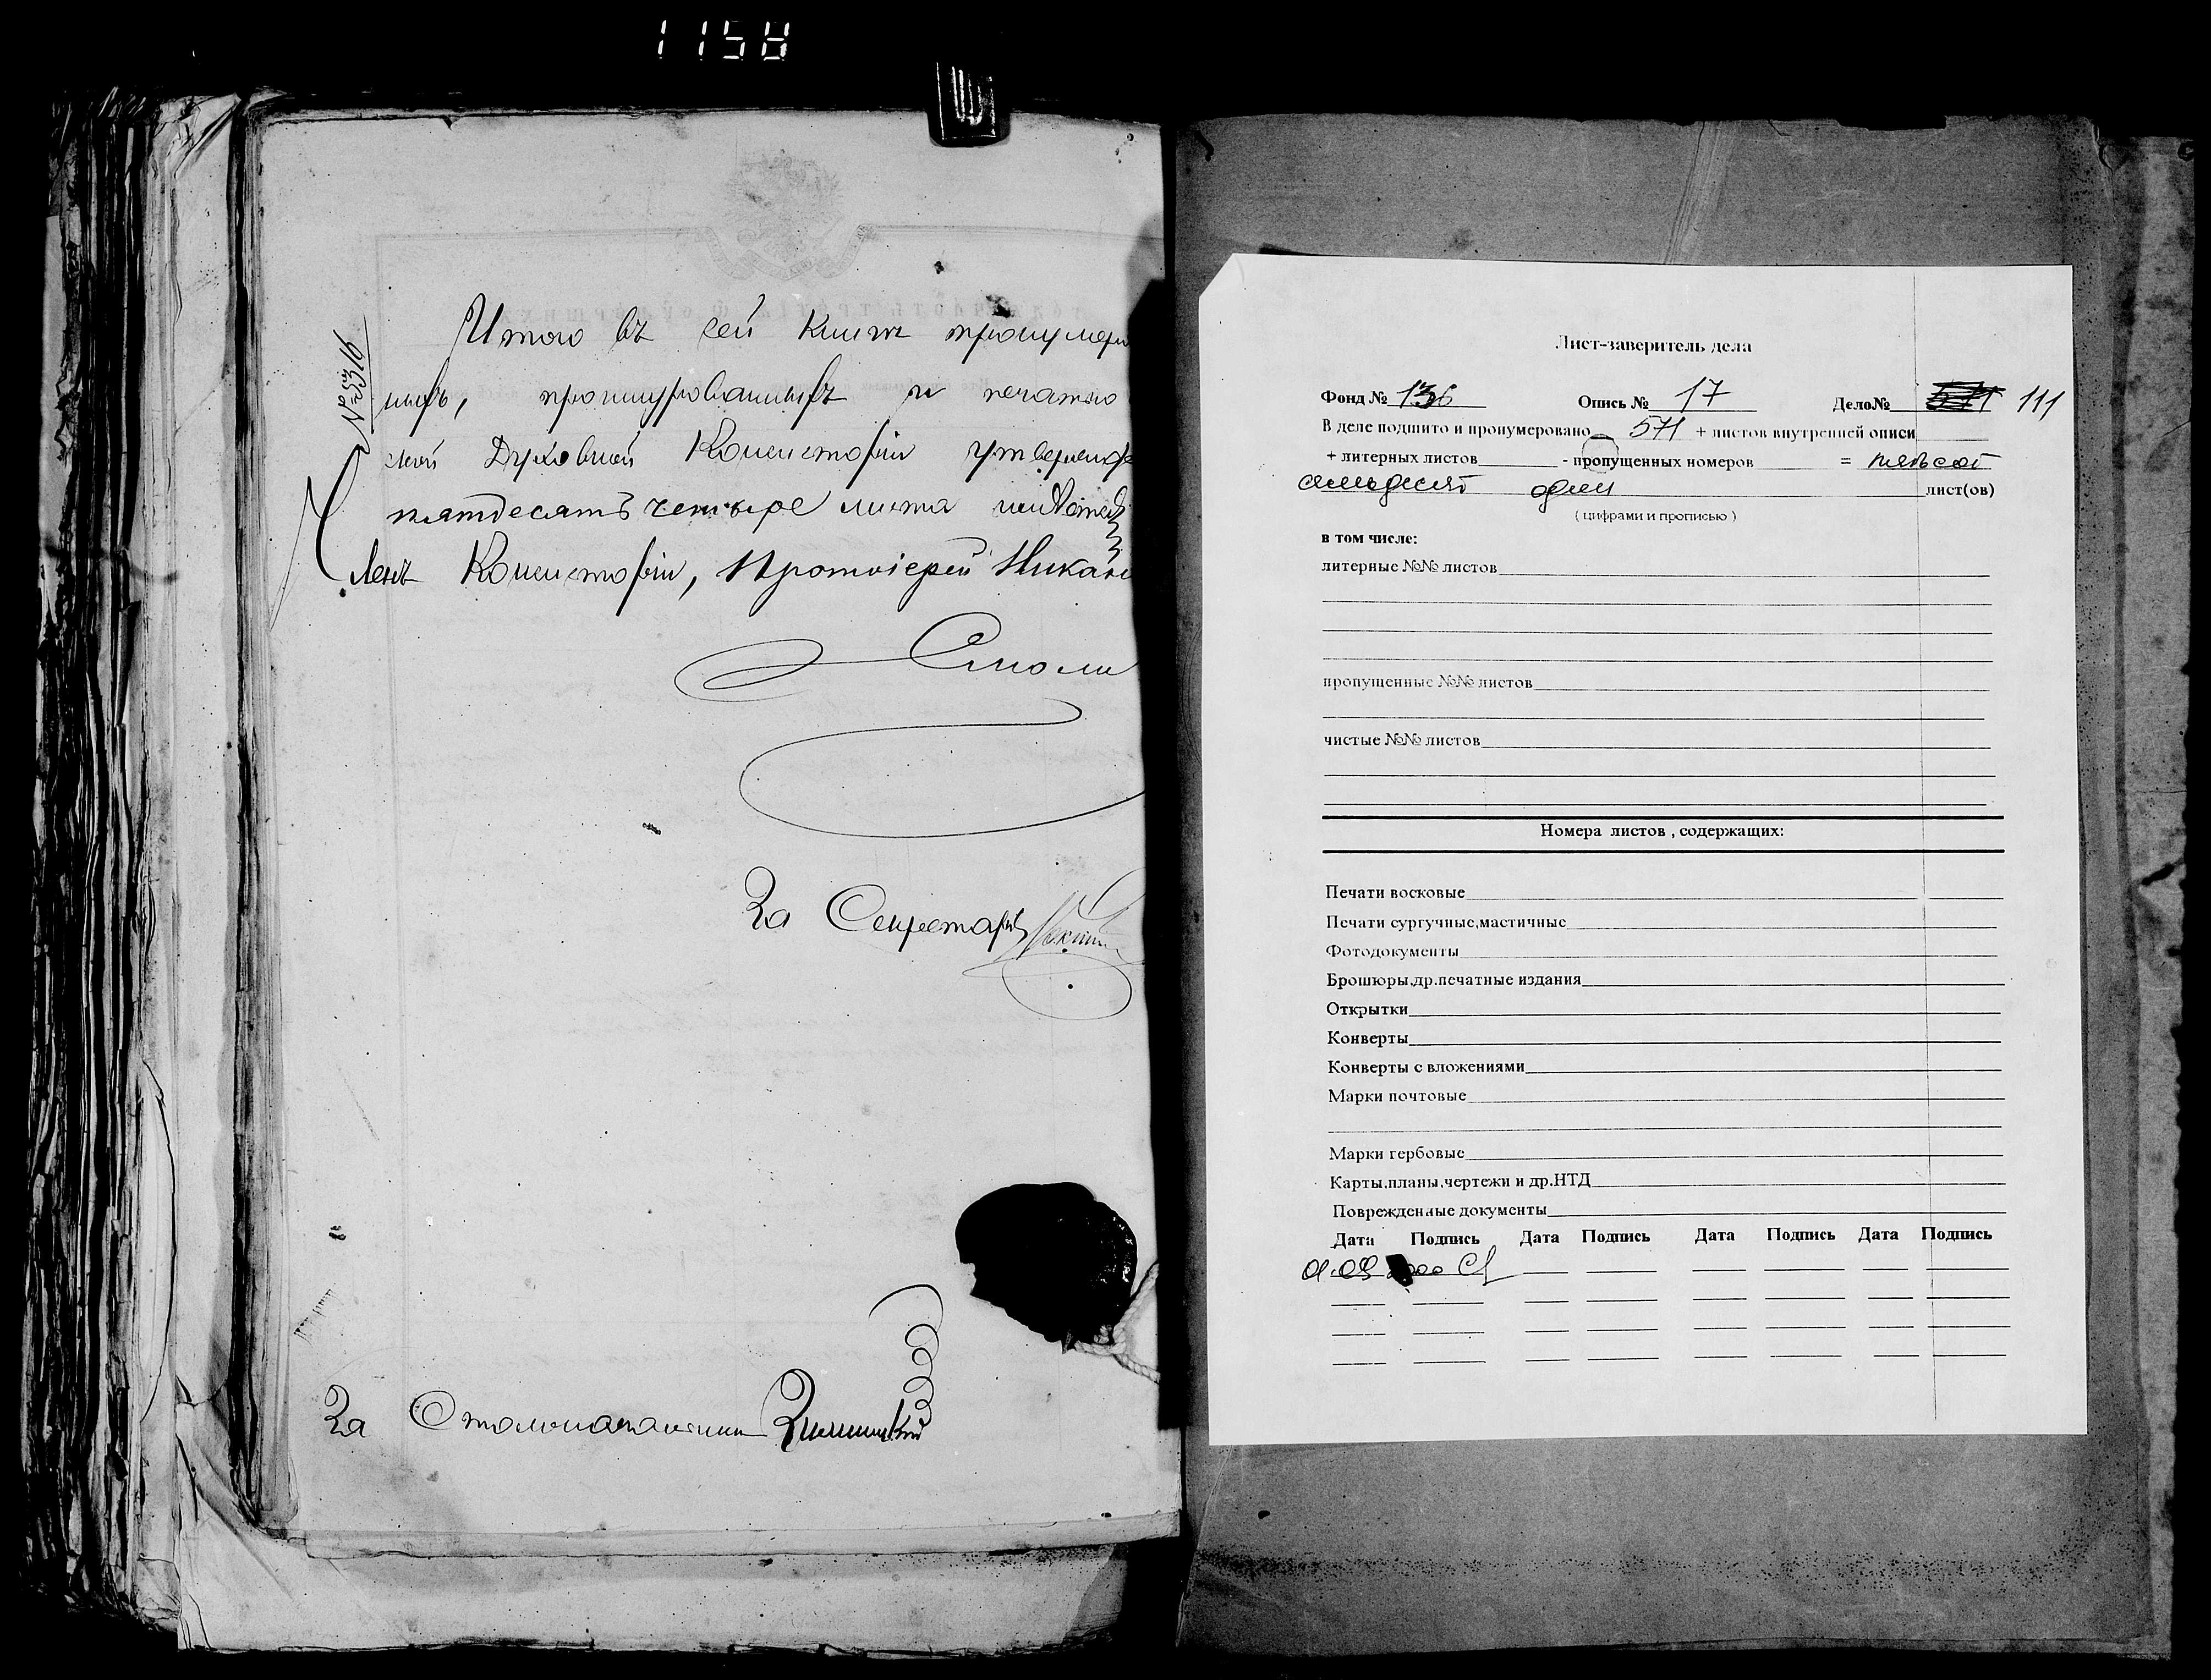 1158
№ 5316
Итого въ сей книгѣ пронумеро
ныхъ, прошнурованныхъ и печатью
ской Духовной Консисторіи утвержде
пятдесятъ четыре листа
Членъ Консисторіи, Протоіерей Никано
Смоли
За Секретаря
За Столоначальника
Лист-заверитель дела
Фонд № 136 Опись № 17 Дело№ 571 111
В деле подшито и пронумеровано 571 + листов внутренней описи
+ литерных листов - пропущенных номеров = пятьсот
семьдесят один лист(ов)
( цифрами и прописью )
в том числе:
литерные №№ листов
пропущенные №№ листов
чистые №№ листов
Номера листов , содержащих:
Печати восковые
Печати сургучные,мастичные
Фотодокументы
Брошюры,др.печатные издания
Открытки
Конверты
Конверты с вложениями
Марки почтовые
Марки гербовые
Карты,планы,чертежи и др.НТД
Поврежденные документы
Дата Подпись Дата Подпись Дата Подпись Дата Подпись